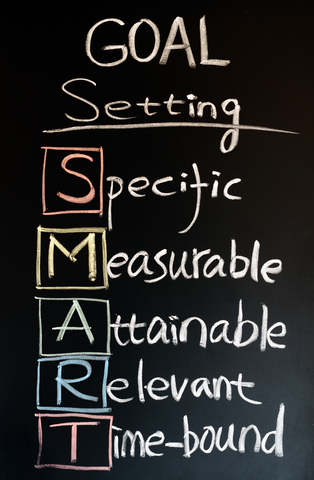 GOAL
Setting
Specific
Measurable
Attainable
Relevant
Time-bound